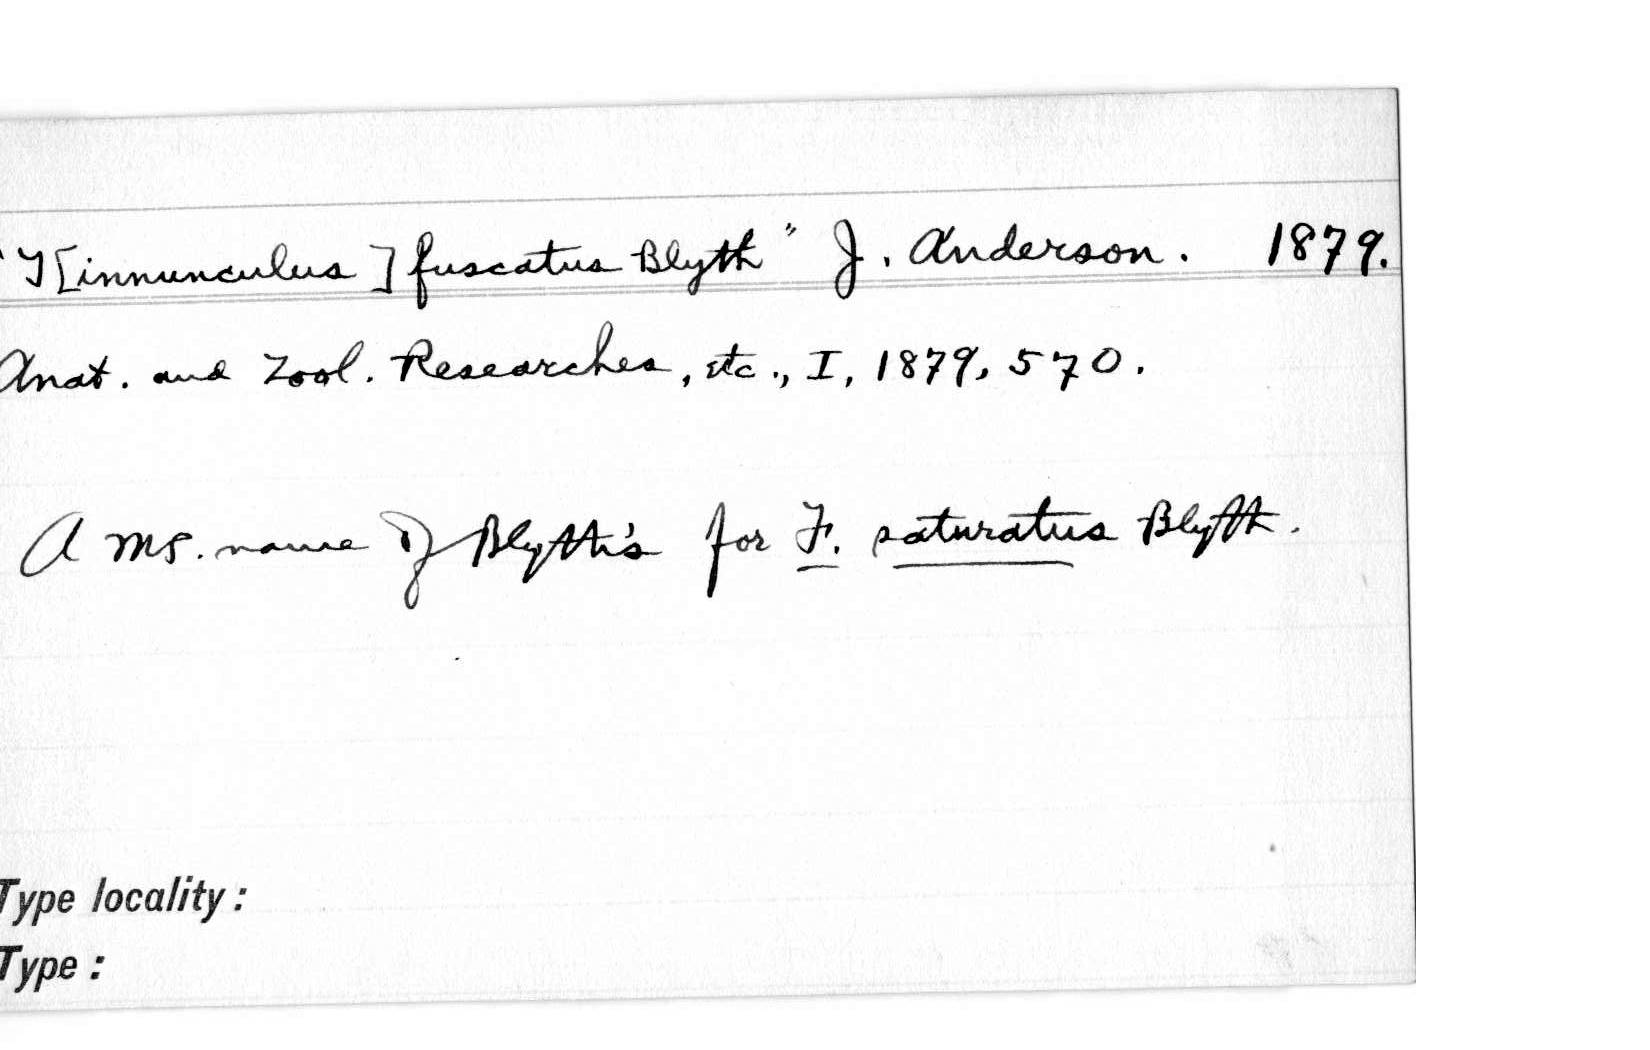 "T[innunculus] fuscatus Blyth" J. Anderson. 1879.
Anat. and Zool. Researches, etc., I, 1879, 570.
A MS. name of Blyth's for F. saturatus Blyth.
Type locality:
Type: